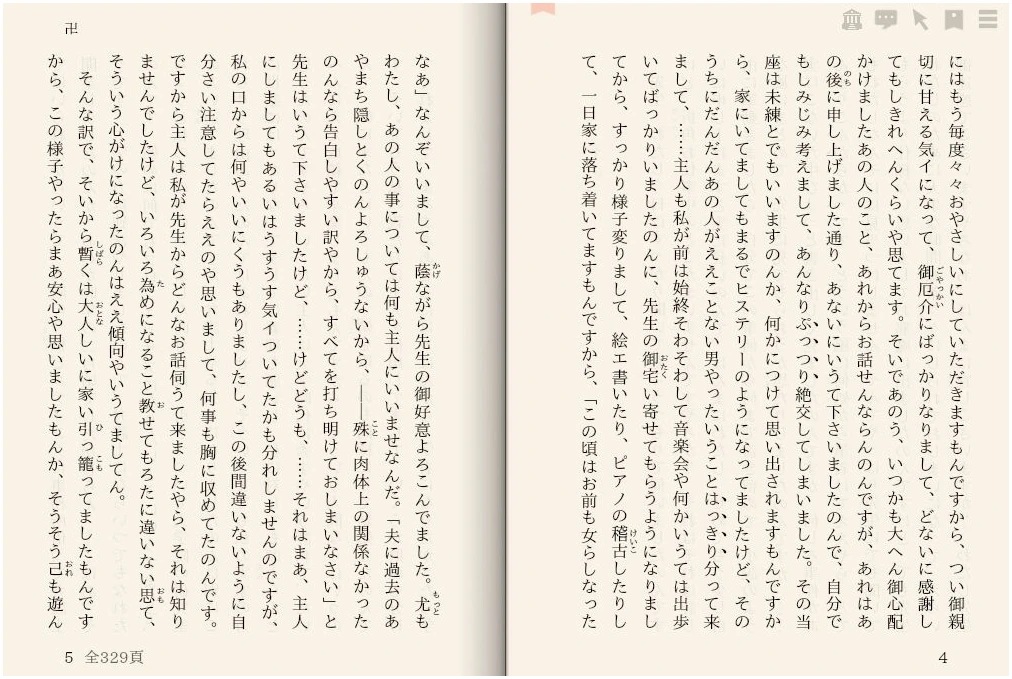 にはもう毎度々々おやさしいにしていただきますもんですから、つい御親
切に甘える気イになって、御厄介にばっかりなりまして、どないに感謝し
てもしきれへんくらいや思てます。そいであのう、いつかも大へん御心配
かけましたあの人のこと、あれからお話せんならんのんですが、あれはあ
の後に申し上げました通り、あないにいうて下さいましたのんで、自分で
もしみじみ考えまして、あんなりぷっつり絶交してしまいました。その当
座は未練とでもいいますのんか、何かにつけて思い出されますもんですか
ら、家にいてましてもまるでヒステリーのようになってましたけど、その
うちにだんだんあの人がええことない男やったいうことはっきり分って来
まして、……主人も私が前は始終そわそわして音楽会や何かいうては出歩
いてばっかりいましたのんに、先生の御宅い寄せてもらうようになりまし
てから、すっかり様子変りまして、絵エ書いたり、ピアノの稽古したりし
て、一日家に落ち着いてますもんですから、「この頃はお前も女らしなった
4
卍
なぁ」なんぞいいまして、蔭ながら先生の御好意よろこんでました。尤も
わたし、あの人の事については何も主人にいいませなんだ。「夫に過去のあ
やまち隠しとくのんよろしゅうないから、――殊に肉体上の関係なかった
のんなら告白しやすい訳やから、すべてを打ち明けておしまいなさい」と
先生はいうて下さいましたけど、……けどどうも、……それはまあ、主人
にしましてもあるいはうすうす気イついてたかも分れしませんのですが、
私の口からは何やいいにくうもありましたし、この後間違いないように自
分さい注意してたらええのや思いまして、何事も胸に収めてたのんです。
ですから主人は私が先生からどんなお話伺うて来ましたやら、それは知り
ませんでしたけど、いろいろ為めになること教せてもろたに違いない思て、
そういう心がけになったのんはええ傾向やいうてましてん。
そんな訳で、そいから暫くは大人しいに家い引っ籠ってましたもんです
から、この様子やったらまあ安心や思いましたもんか、そうそう己も遊ん
5 全329頁